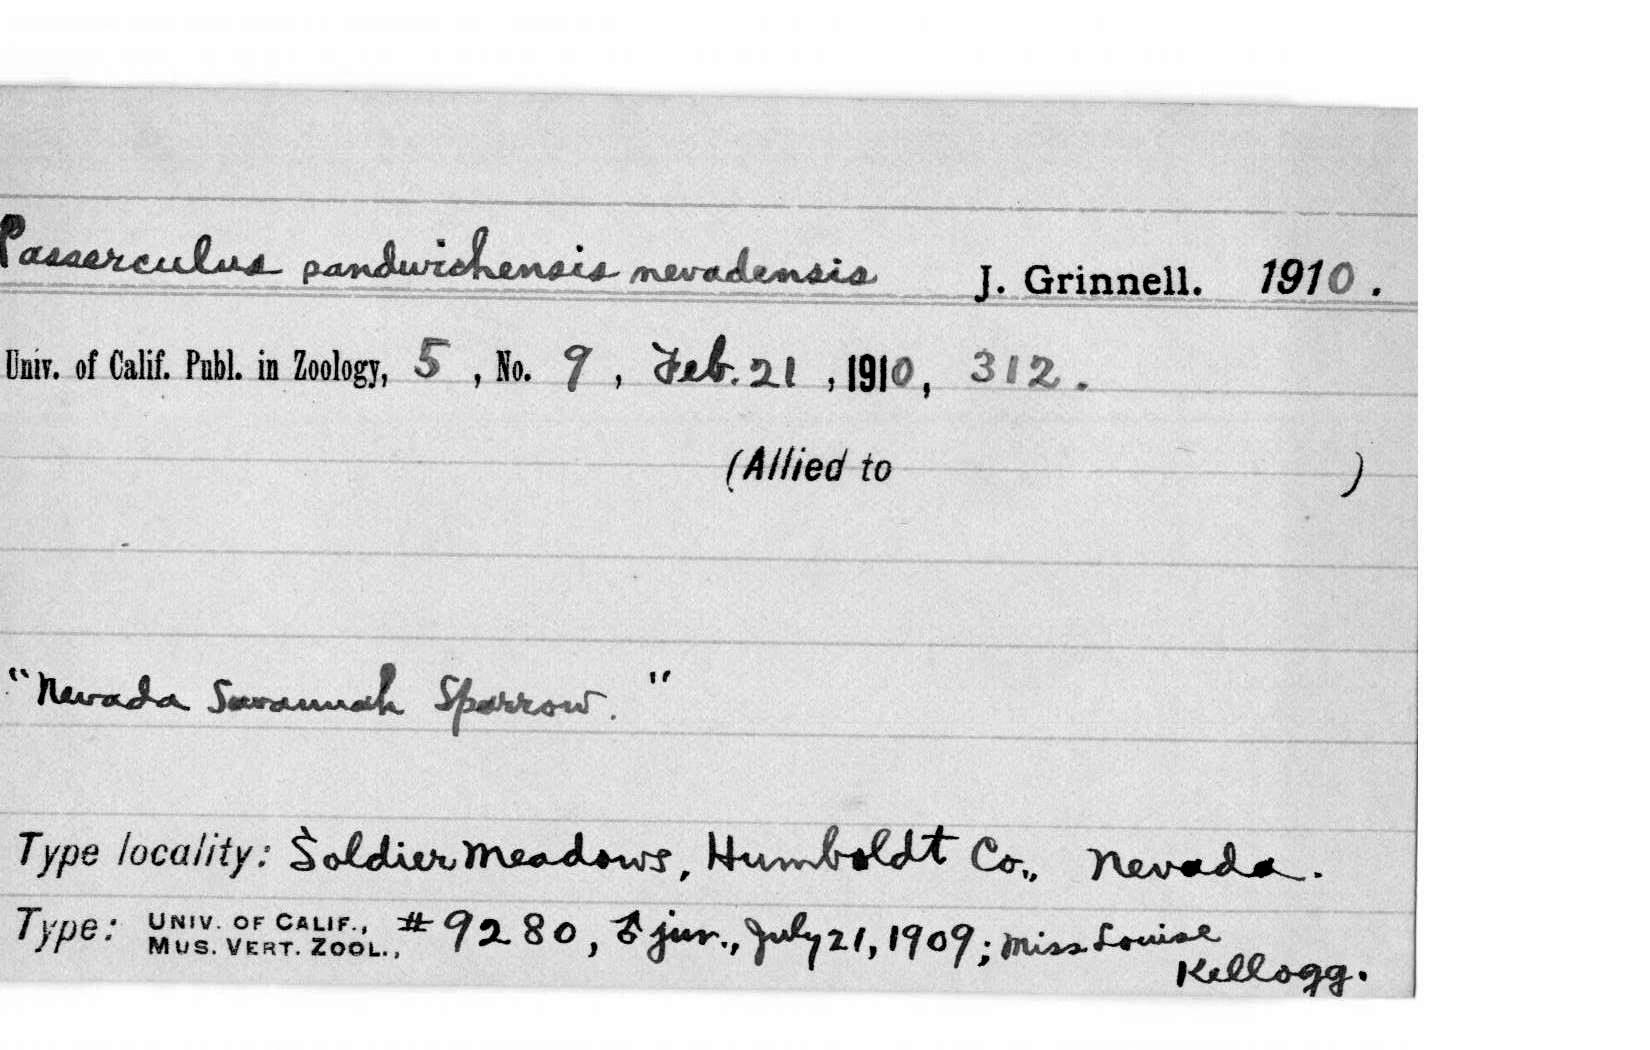 Passerculus sandwichensis nevadensis J. Grinnell. 1910.
Univ. of Calif. Publ. in Zoology, 5, No. 9, Feb. 21, 1910, 312.
(Allied to )
"Nevada Savannah Sparrow."
Type locality: Soldier Meadows, Humboldt Co., Nevada.
Type: Univ. of Calif., Mus. Vert. Zool., #9280, ♂ juv., July 21, 1909; Miss Louise
Kellogg.